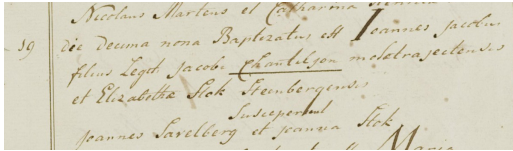 Nicolaus Martens et Catharina
19 die decima nona Baptizatus est Joannes Jacobus
filius Legit Jacobi Chantiljon mosatrajectensis
et Elizabetha Slok Steinbergensis
Susceperunt
Joannes Savelberg et Joanna Slok
Maria